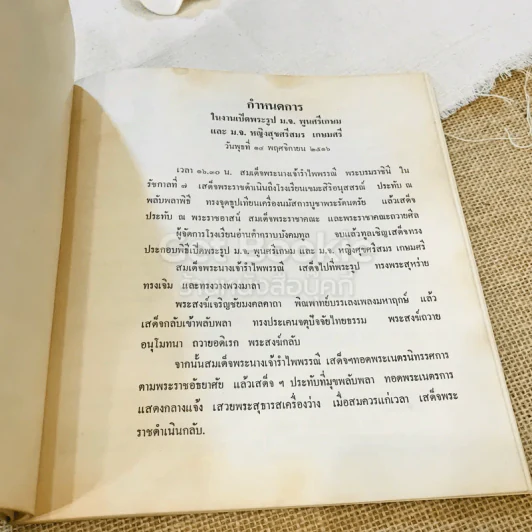 กำหนดการ
ในงานเปิดพระรูป ม.จ. พูนศรีเกษม
และ ม.จ. หญิงสุขศรีสมร เกษมศรี
วันพุธที่ ๑๔ พฤศจิกายน ๒๕๑๖
เวลา ๑๖.๓๐ น. สมเด็จพระนางเจ้ารำไพพรรณี พระบรมราชินี ใน
รัชกาลที่ ๗ เสด็จพระราชดำเนินถึงโรงเรียนเขมะสิริอนุสสรณ์ ประทับ ณ
พลับพลาพิธี ทรงจุดธูปเทียนเครื่องนมัสการบูชาพระรัตนตรัย แล้วเสด็จ
ประทับ ณ พระราชอาสน์ สมเด็จพระราชาคณะ และพระราชาคณะถวายศีล
ผู้จัดการโรงเรียนอ่านคำกราบบังคมทูล จบแล้วทูลเชิญเสด็จทรง
ประกอบพิธีเปิดพระรูป ม.จ. พูนศรีเกษม และ ม.จ. หญิงสุขศรีสมร เกษมศรี
สมเด็จพระนางเจ้ารำไพพรรณี เสด็จไปที่พระรูป ทรงพระสุหร่าย
ทรงเจิม และทรงวางพวงมาลา
พระสงฆ์เจริญชัยมงคลคาถา พิณพาทย์บรรเลงเพลงมหาฤกษ์ แล้ว
เสด็จกลับเข้าพลับพลา ทรงประเคนจตุปัจจัยไทยธรรม พระสงฆ์ถวาย
อนุโมทนา ถวายอดิเรก พระสงฆ์กลับ
จากนั้นสมเด็จพระนางเจ้ารำไพพรรณี เสด็จฯทอดพระเนตรนิทรรศการ
ตามพระราชอัธยาศัย แล้วเสด็จ ๆ ประทับที่มุขพลับพลา ทอดพระเนตรการ
แสดงกลางแจ้ง เสวยพระสุธารสเครื่องว่าง เมื่อสมควรแก่เวลา เสด็จพระ
ราชดำเนินกลับ.